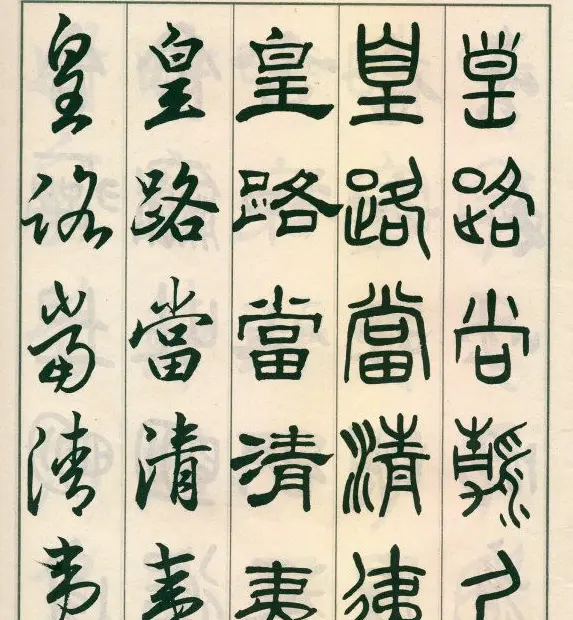 皇路尚
皇路當清
皇路當清夷
皇路當清夷
皇路當清夷